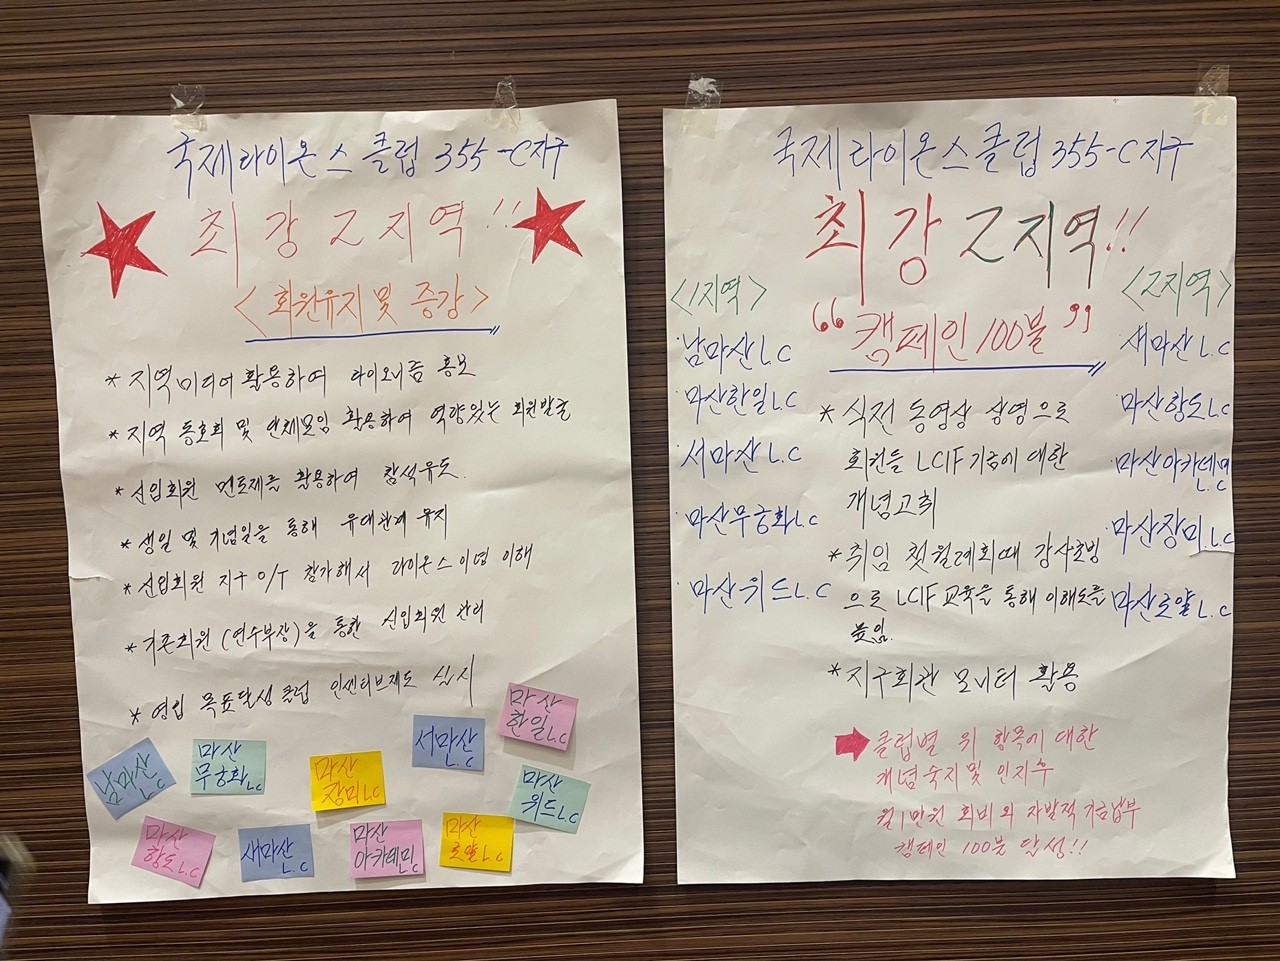 국제라이온스클럽 355-C지구
최강 2지역!!
<회원유지 및 증강>
* 지역미디어 활용하여 라이오니즘 홍보
* 지역 동호회 및 단체모임 활용하여 역량있는 회원발굴
* 신입회원 멘토제를 활용하여 참석유도.
* 생일 및 기념일을 통해 유대관계 유지
* 신입회원 지구 O/T 참가해서 라이온스이념 이해
* 기존회원(연수부장)을 통한 신입회원 관리
* 영입 목표달성 클럽 인센티브제도 실시
남마산 L.C
마산
무궁화L.C
마산
장미L.C
서마산
L.C
마산
한일L.C
마산
위드L.C
마산
항도L.C
새마산
L.C
마산
아카데미
L.C
마산
로얄L.C
국제라이온스클럽 355-C지구
최강 2지역!!
<1지역>
남마산L.C
마산한일L.C
서마산L.C
마산무궁화L.C
마산위드L.C
"캠페인 100불"
* 식전 동영상 상영으로
회원들 LCIF기금에 대한
개념고취
* 취임 첫월례회때 강사초빙
으로 LCIF교육을 통해 이해도를
높임.
* 지구회관 모니터 활용
클럽별 위 항목에 대한
개념숙지 및 인지후
월1만원 회비외 자발적기금납부
캠페인 100불 달성!!
<2지역>
새마산L.C
마산항도L.C
마산아카데미
L.C
마산장미L.C
마산로얄L.C